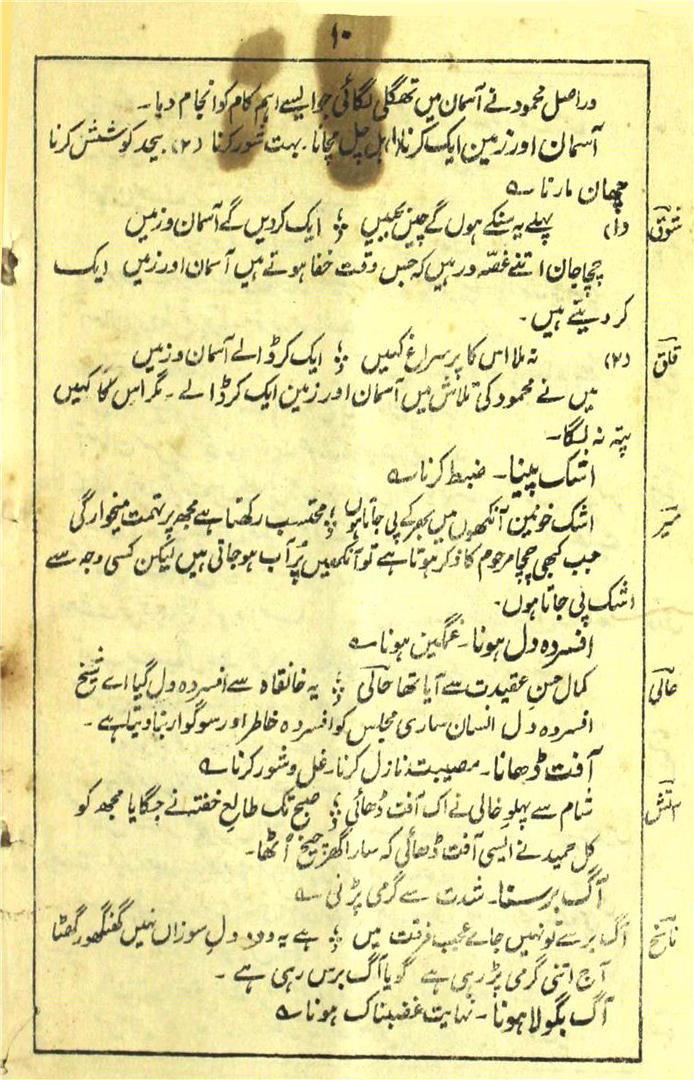 ۱۰
دراصل محمود نے آسمان میں تھگلی لگائی جو ایسے اہم کام کو انجام دیا۔
آسمان اور زمین ایک کرنا (۱) ہل چل مچانا۔ بہت شور کرنا (۲) بیحد کوشش کرنا
چھان مارنا ؎
شوق (۱) پہلے یہ سنکے ہوں گے چیں بجبیں ؛ ایک کر دیں گے آسمان و زمیں
چچا جان اتنے غصّہ ور ہیں کہ جس وقت خفا ہوتے ہیں آسمان اور زمیں ایک
کر دیتے ہیں۔
قلق (۲) نہ ملا اس کا پر سراغ کہیں ؛ ایک کر ڈالے آسمان و زمیں
میں نے محمود کی تلاش میں آسمان اور زمین ایک کر ڈالے۔ مگر اس کا کہیں
پتہ نہ لگا۔
اشک پینا۔ ضبط کرنا ؎
میر اشک خونین آنکھوں میں بھر کے پی جاتا ہوں ؛ محتسب رکھتا ہے مجھ پر تہمت میخوارگی
جب کبھی چچا مرحوم کا ذکر ہوتا ہے تو آنکھیں پُر آب ہو جاتی ہیں لیکن کسی وجہ سے
اشک پی جاتا ہوں۔
افسردہ دل ہونا۔ غمگین ہونا ؎
حالی کمال حسنِ عقیدت سے آیا تھا حالی ؛ یہ خانقاہ سے افسردہ دل گیا اے شیخ
افسردہ دل انسان ساری مجلس کو افسردہ خاطر اور سوگوار بنا دیتا ہے۔
آفت ڈھانا۔ مصیبت نازل کرنا۔ غل و شور کرنا ؎
آتش شام سے پہلوِ خالی نے اک آفت ڈھائی ؛ صبح تک طالعِ خفتہ نے جگایا مجھ کو
کل حمید نے ایسی آفت ڈھائی کہ سارا گھر چیخ اُٹھا۔
آگ برسنا۔ شدت سے گرمی پڑنی ؎
ناسخ آگ برسے تو نہیں جاے عجب فرقت میں ؛ ہے یہ دودِ دلِ سوزاں نہیں گھنگھور گھٹا
آج اتنی گرمی پڑ رہی ہے گویا آگ برس رہی ہے۔
آگ بگولا ہونا۔ نہایت غضبناک ہونا ؎